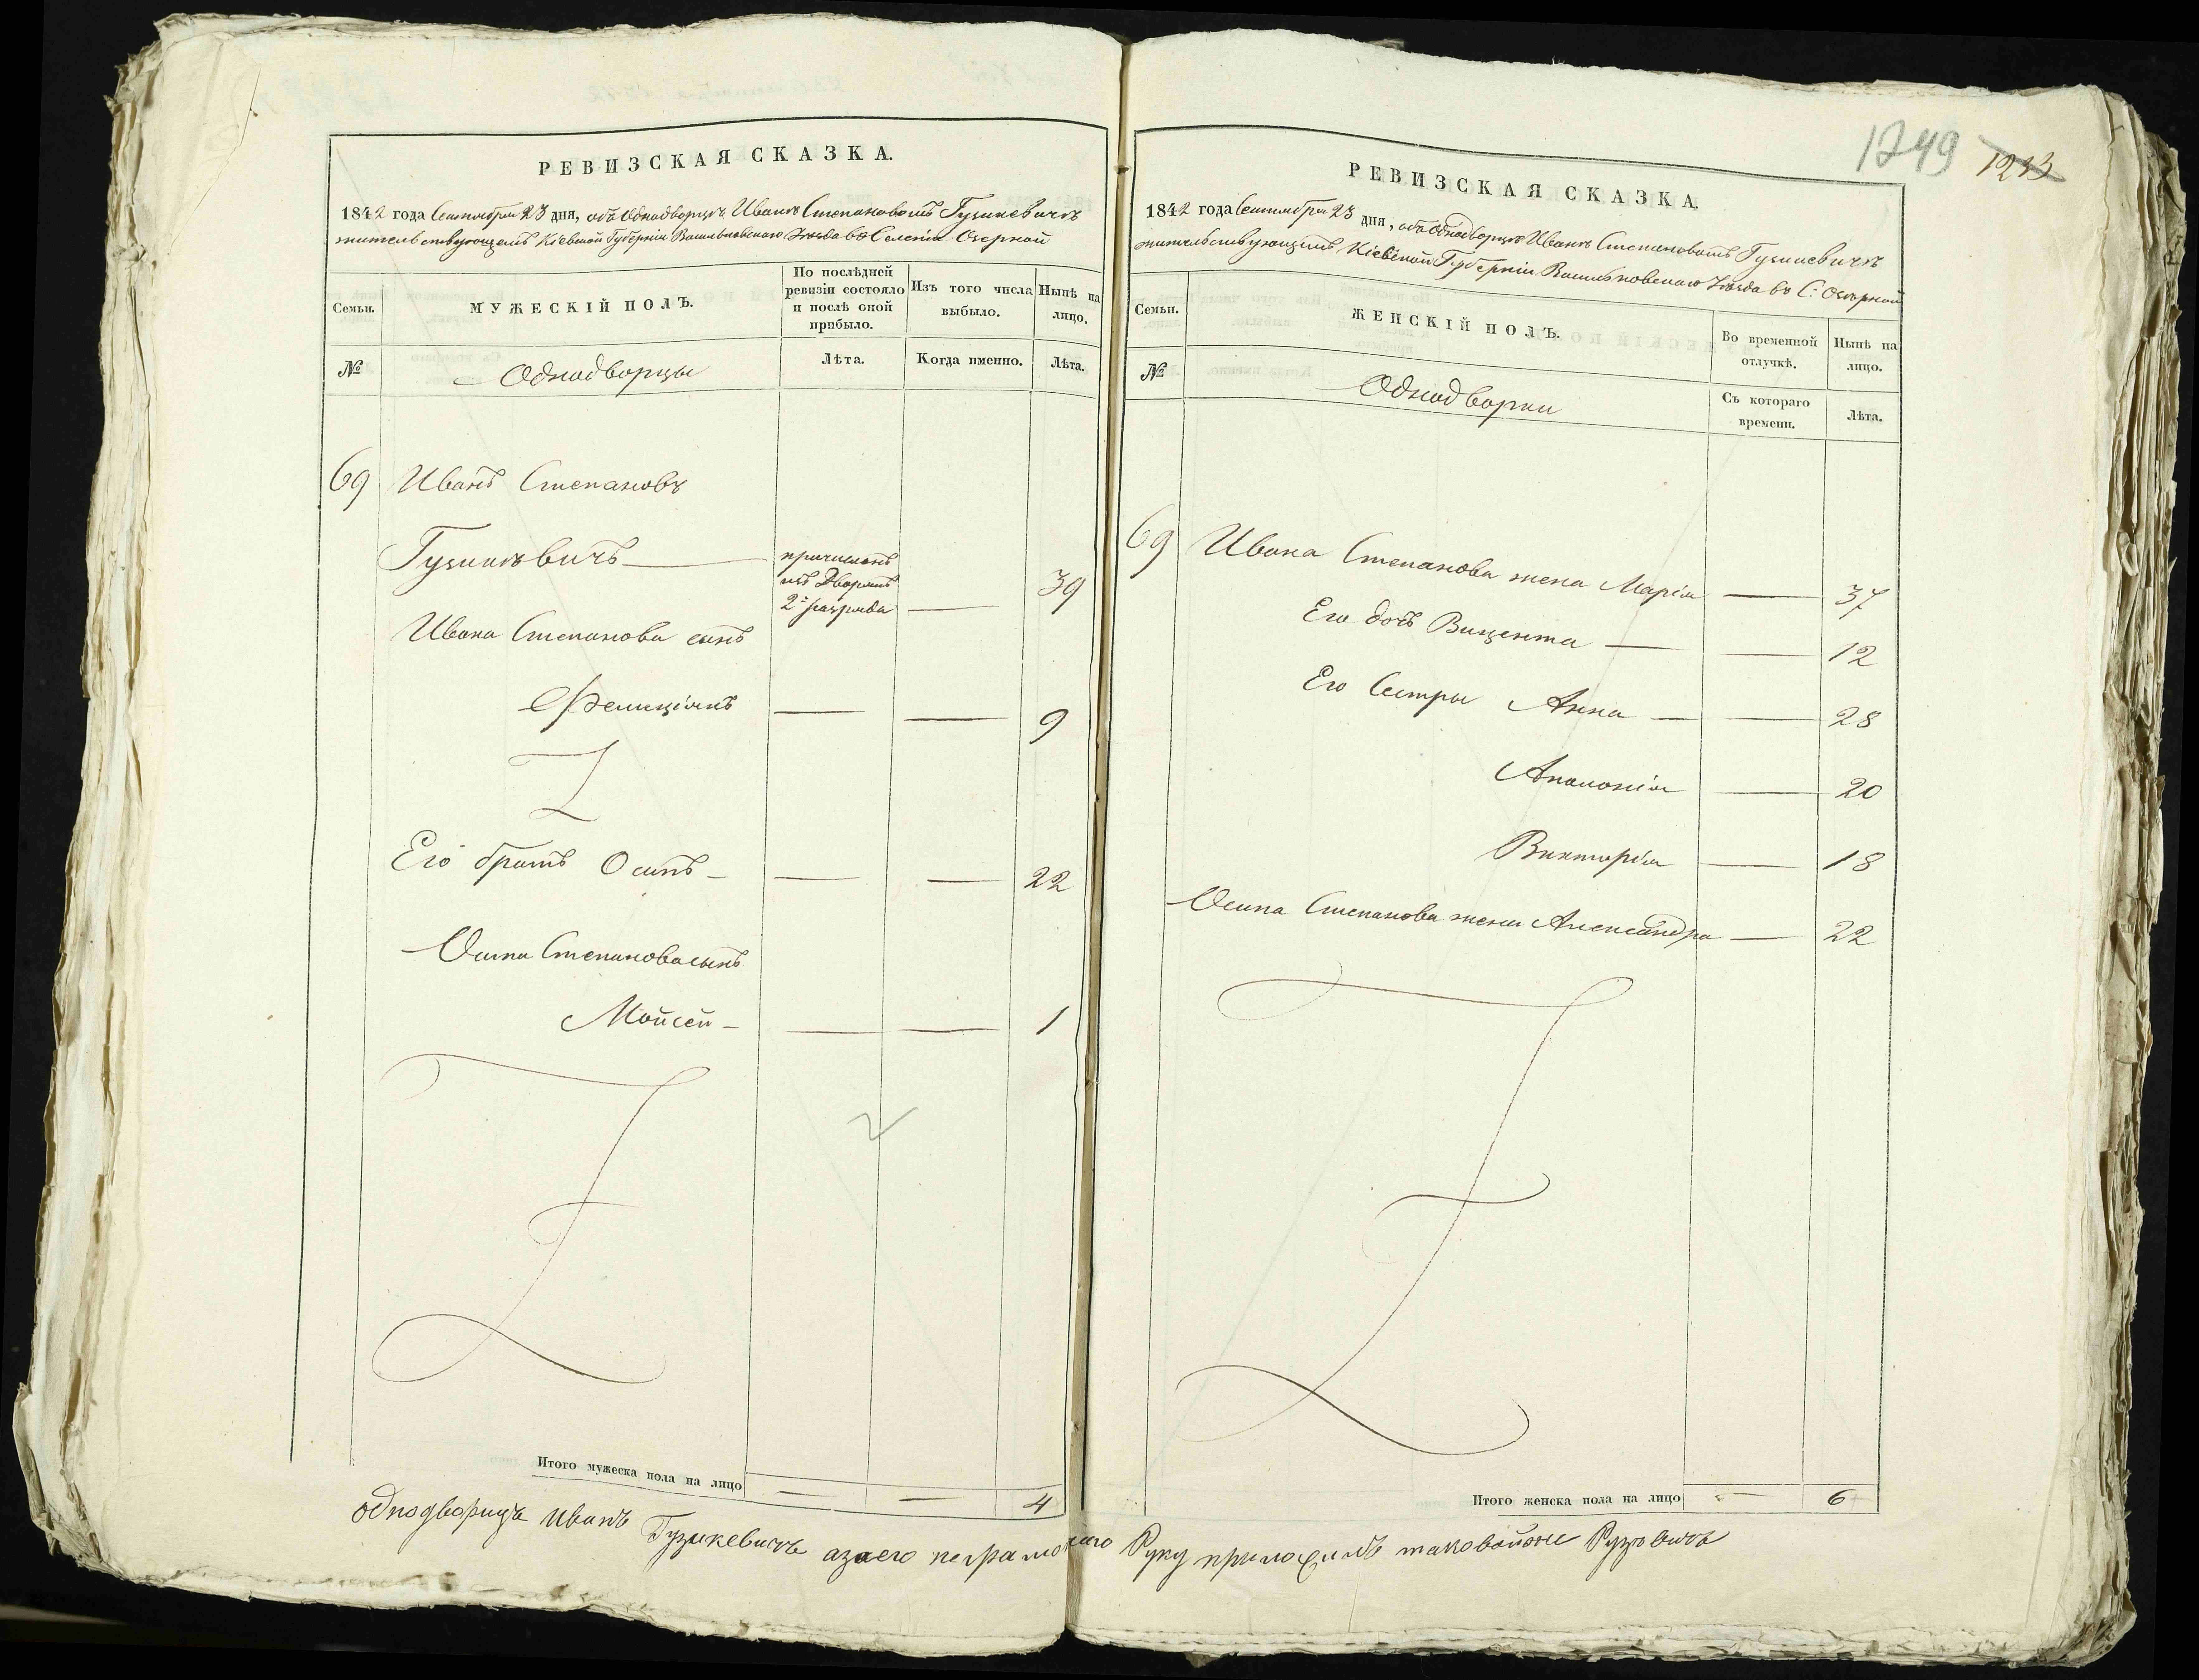 РЕВИЗСКАЯ СКАЗКА.
1842 года Сентября 23 дня, объ Однодворцѣ Иванѣ Степановомъ Гузикевичѣ
жительствующемъ Кіевской Губерніи Васильковскаго Уѣзда въ Селеніи Озерной
Семьи.
МУЖЕСКІЙ ПОЛЪ.
По послѣдней ревизіи состояло и послѣ оной прибыло.
Изъ того числа выбыло.
Нынѣ на лицо.
№
Однодворцы
Лѣта.
Когда именно.
Лѣта.
69 Иванъ Степановъ
Гузикѣвичъ
причисленъ
изъ Дворянъ
2го разряда
39
Ивана Степанова сынъ
Фелиціянъ 9
Его братъ Осипъ 22
Осипа Степанова сынъ
Мойсей 1
Итого мужеска пола на лицо 4
1249 1213
РЕВИЗСКАЯ СКАЗКА.
1842 года Сентября 23 дня, объ Однодворцѣ Иванѣ Степановомъ Гузикевичѣ
жительствующимъ Кіевской Губерніи Васильковскаго Уѣзда въ С: Озерной
Семьи.
ЖЕНСКІЙ ПОЛЪ.
Во временной отлучкѣ.
Нынѣ на лицо.
№
Однодворки
Съ котораго времени.
Лѣта.
69 Ивана Степанова жена Марія 37
Его дочь Вицента 12
Его Сестры Анна 28
Аполонія 20
Викторія 18
Осипа Степанова жена Александра 22
Итого женска пола на лицо 6
однодворицъ Иванъ Гузикевичъ азаего неграмотнаго Руку приложилъ таковойже